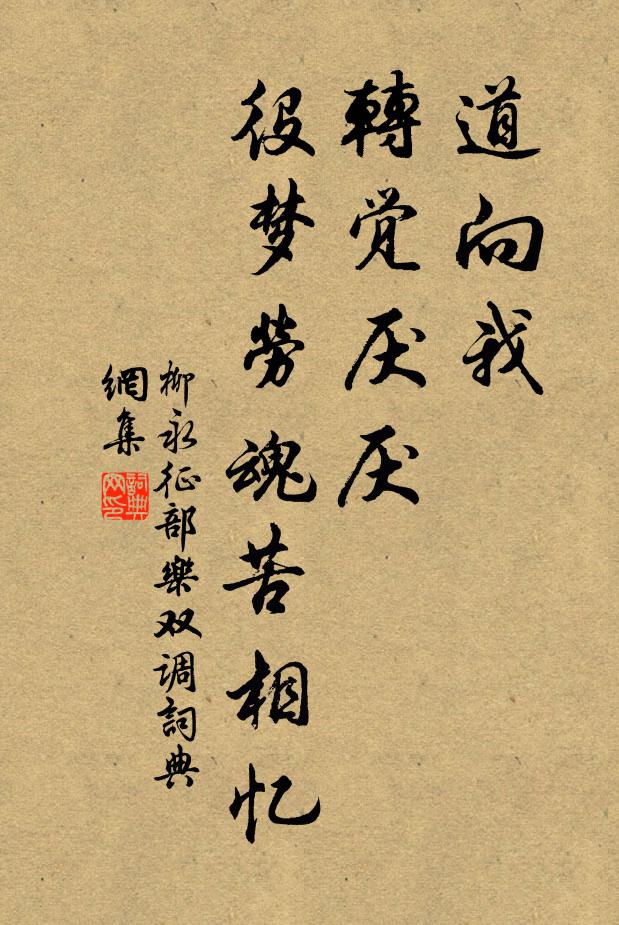 道向我
轉觉厌厌
役梦劳魂苦相忆
柳永征部樂双调詞典
網集
詞典
网印